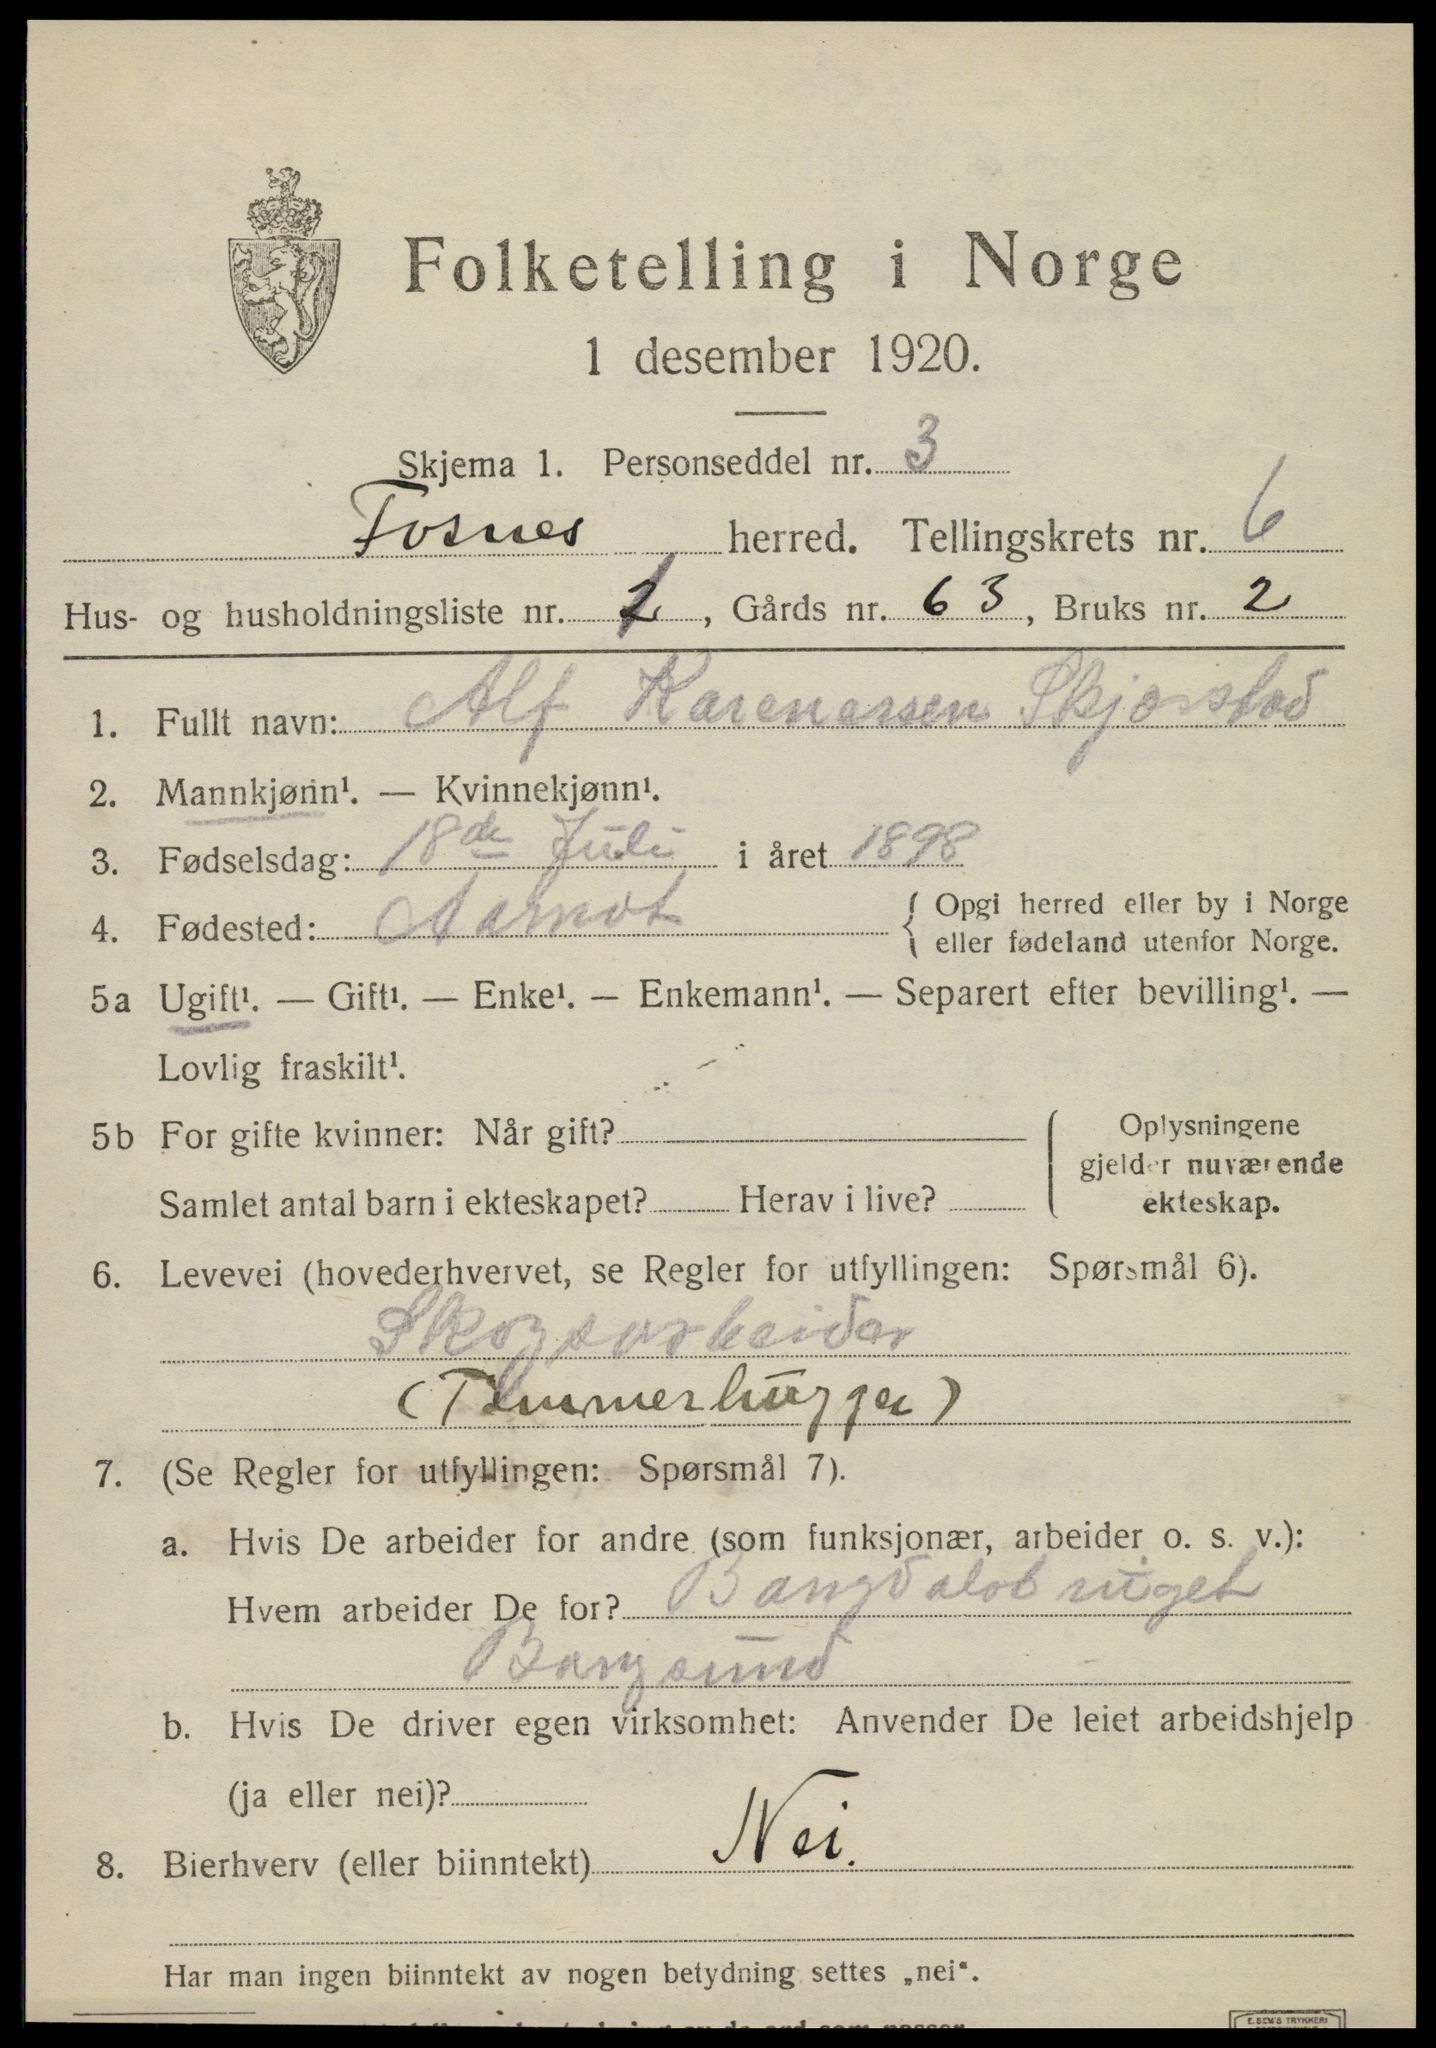 Folketelling i Norge
1 desember 1920.
Skjema 1. Personseddel nr. 3
Fosnes herred. Tellingskrets nr. 6
Hus- og husholdningsliste nr. , Gårds nr. 63, Bruks nr. 2
1. Fullt navn: Alf Karenessen Skjærstad
2. Mannkjønn¹. — Kvinnekjønn¹.
3. Fødselsdag: 18de Juli i året 1898
4. Fødested: { Opgi herred eller by i Norge
eller fødeland utenfor Norge.
5a Ugift¹. — Gift¹. — Enke¹. — Enkemann¹. — Separert efter bevilling¹. —
Lovlig fraskilt¹.
5b For gifte kvinner: Når gift? { Oplysningene
gjelder nuværende
Samlet antal barn i ekteskapet? Herav i live? ekteskap.
6. Levevei (hovederhvervet, se Regler for utfyllingen: Spørsmål 6).
Skogsarbeider
(Tømmerhugger)
7. (Se Regler for utfyllingen: Spørsmål 7).
a. Hvis De arbeider for andre (som funksjonær, arbeider o. s. v.):
Hvem arbeider De for? Bangdalsbruget
Bangsund
b. Hvis De driver egen virksomhet: Anvender De leiet arbeidshjelp
(ja eller nei)?
8. Bierhverv (eller biinntekt) Nei.
Har man ingen biinntekt av nogen betydning settes „nei“.
E. SEM'S TRYKKERI